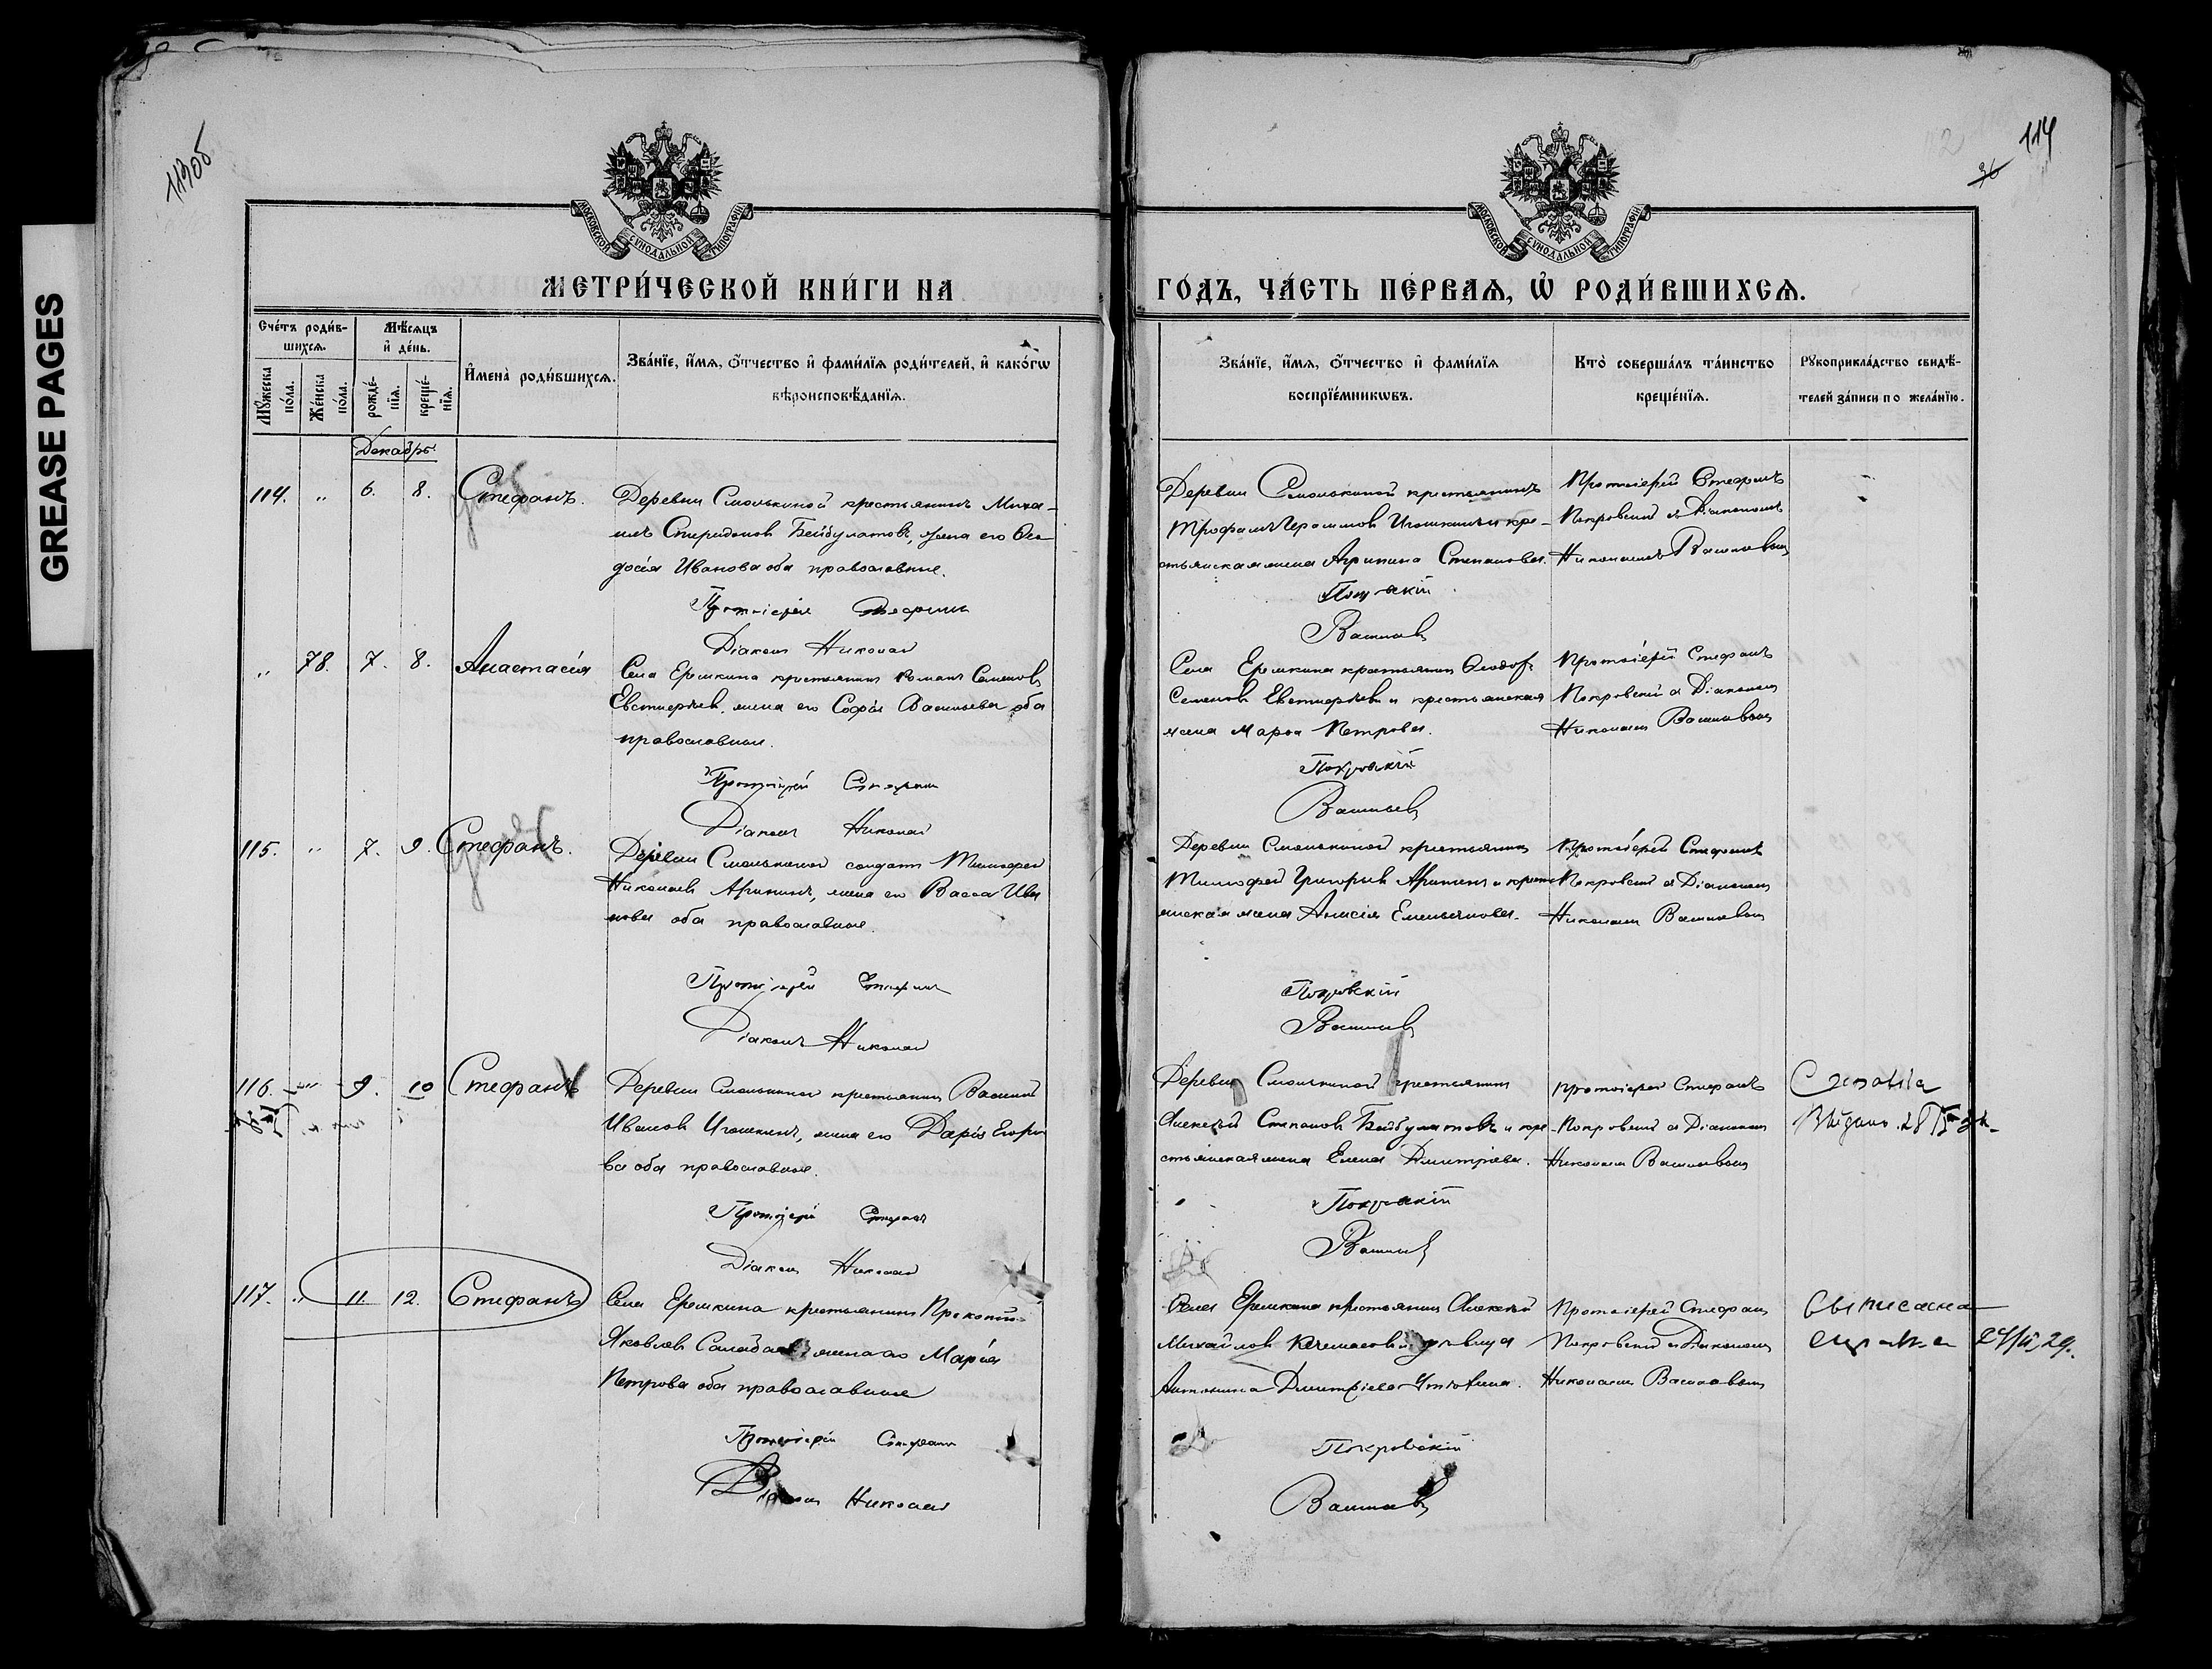 GREASE PAGES
113об
114
36
МОСКОВСКОЙ СѴНОДАЛЬНОЙ ТИПОГРАФІИ
МОСКОВСКОЙ СѴНОДАЛЬНОЙ ТИПОГРАФІИ
МЕТРИ́ЧЕСКОЙ КНИ́ГИ НА
ГО́ДЪ, ЧА́СТЬ ПЕ́РВАѦ, Ѡ҆ РОДИ́ВШИХСѦ.
Сче́тъ роди́в-
шихсѧ.
Мѣ́сѧцъ
и҆ де́нь.
Мꙋ́жеска
по́ла.
Же́нска
по́ла.
рожде́-
нїѧ.
креще́-
нїѧ.
И҆мена̀ роди́вшихсѧ.
Зва́нїе, и҆́мѧ, ѻ҆́тчество и҆ фами́лїѧ роди́телей, и҆ како́гѡ
вѣроисповѣ́данїѧ.
Зва́нїе, и҆́мѧ, ѻ҆́тчество и҆ фами́лїѧ
воспрїе́мникѡвъ.
Кто̀ соверша́лъ та́инство
креще́нїѧ.
Рꙋкоприкла́дство свидѣ́-
телей за́писи по жела́нїю.
Декабрь
114. „ 6. 8. Стефанъ.
Деревни Смолькиной крестьянинъ Миха-
илъ Спиридоновъ Бейбулатовъ, жена его Ѳео-
досія Иванова оба православные.
Протоіерей Стефанъ
Діаконъ Николай
Деревни Смолькиной крестьянинъ
Игошкинъ и кре-
стьянская жена Агрипина Степанова.
Покровскій
Васильевъ
Протоіерей Стефанъ
Покровскій съ Діакономъ
Николаемъ Васильевым
„ 78. 7. 8. Анастасія
Села Еремкина крестьянинъ Романъ Семеновъ
Евстигнѣевъ, жена его Софія Васильева оба
православные.
Протоіерей Стефанъ
Діаконъ Николай
Села Еремкина крестьянин Ѳеодоръ
Семеновъ Евстигнѣевъ и крестьянская
жена Марѳа Петрова.
Покровскій
Васильевъ
Протоіерей Стефанъ
Покровскій съ Діаконом
Николаем Васильевым
115. „ 7. 9. Стефанъ.
Деревни Смолькиной солдатъ Тимофей
Николаевъ Арипинъ, жена его Васса Ива
нова оба православные.
Протоіерей Стефанъ
Діаконъ Николай
Деревни Смолькиной крестьянинъ
Тимофей Григорьевъ Арипинъ и крестья
янская жена Анисія Емельянова.
Покровскій
Васильевъ
Протоіерей Стефанъ
Покровскій съ Діаконом
Николаем Васильевым
116. „ 9. 10 Стефанъ
Деревни Смолькиной крестьянинъ Василій
Ивановъ Игошкинъ, жена его Дарія Егоро
ва оба православные.
Протоіерей Стефанъ
Діаконъ Николай
Деревни Смолькиной крестьянинъ
Алексѣй Степановъ Бейбулатовъ и кре-
стьянская жена Елена Дмитріева.
Покровскій
Васильевъ
Протоіерей Стефанъ
Покровскій съ Діаконом
Николаем Васильевым
Справка
117. „ 11. 12. Стефанъ
Села Еремкина крестьянинъ Прокопій
Яковлевъ жена его Марія
Петрова оба православные
Протоіерей Стефанъ
Діаконъ Николай
Села Еремкина крестьянин Алексѣй
Михайловъ и дѣвица
Антонина Дмитріева
Покровскій
Васильевъ
Протоіерей Стефанъ
Покровскій съ Діаконом
Николаем Васильевым
Выписана
справка